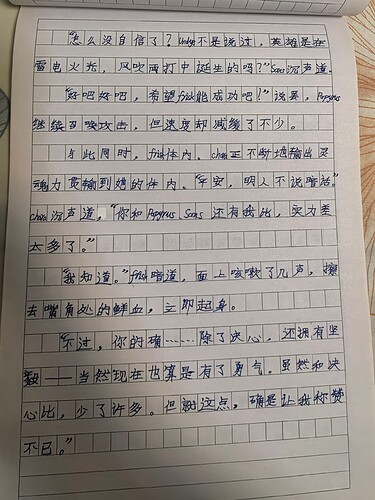 “怎么没自信了？Undyne不是说过，英雄是在
雷电火光，风吹雨打中诞生的吗？”Sans沉声道.
“好吧好吧，希望frisk能成功吧！”说罢，Papyrus
继续召唤攻击，但速度却减缓了不少。
与此同时，frisk体内。chara正不断地输出灵
魂力贯输到她的体内。“平安，明人不说暗话.”
chara沉声道，“你和Papyrus Sans还有我比，实力差
太多了。”
“我知道。”frisk暗道，面上咳嗽了几声，擦
去嘴角处的鲜血，立即起身。
“不过，你的确……除了决心，还拥有坚
毅——当然现在也算是有了勇气。虽然和决
心比，少了许多。但就这点，确是让我称赞
不已。”